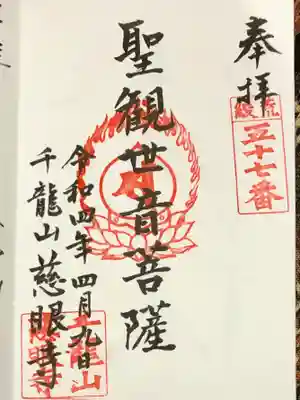 奉拝
五十七番
聖観世音菩薩
令和四年四月九日
千龍山慈眼寺